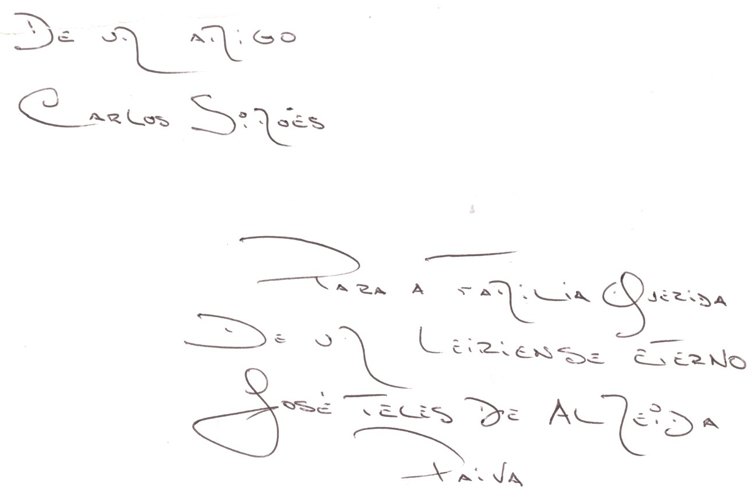 De um amigo
Carlos Simões
Para a Família Querida
De um Leiriense Eterno
José Teles de Almeida
Paiva